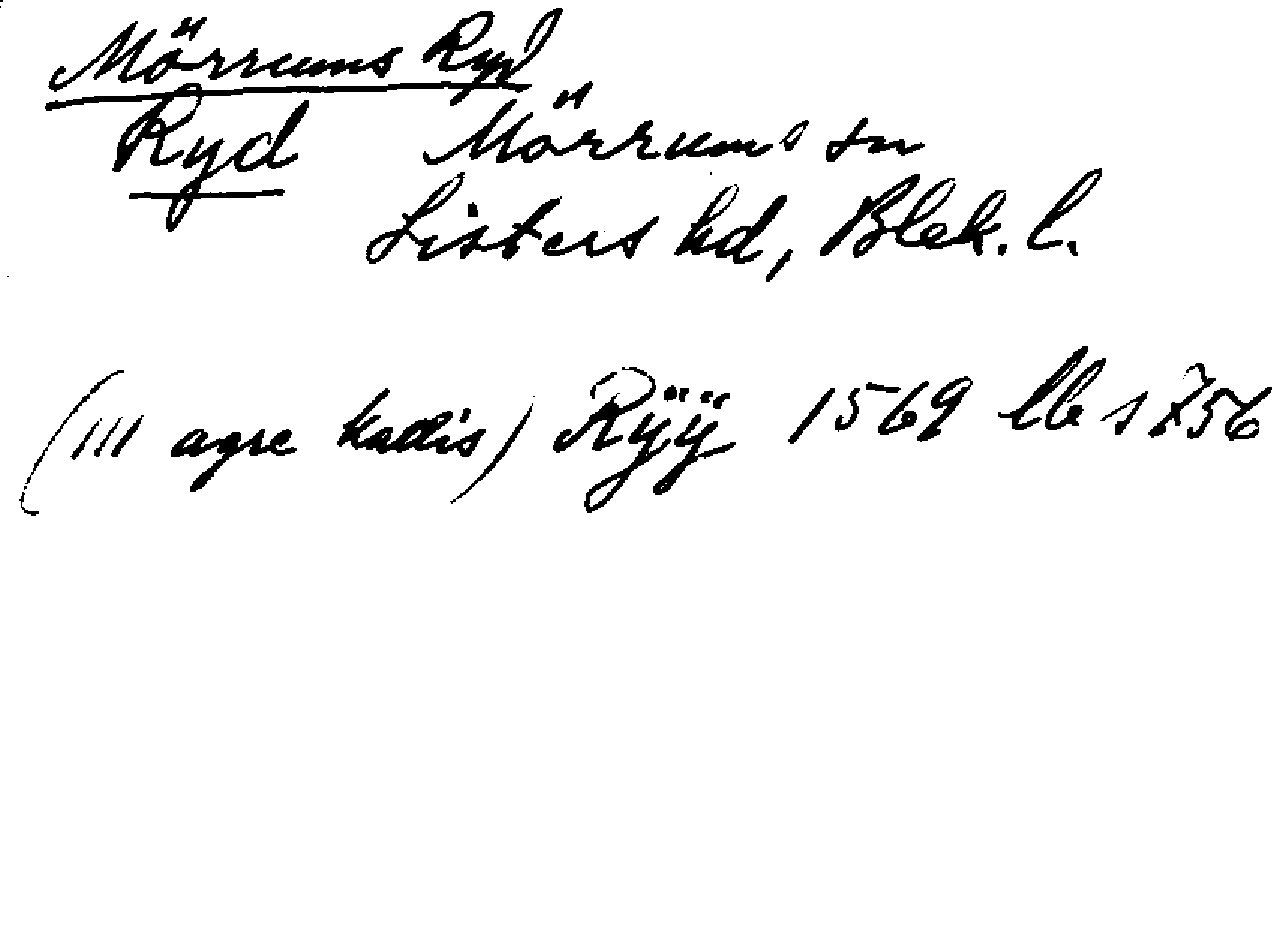 Mörrums Ryd
Ryd Mörrums sn
Listers hd, Blek. l.
(III agre kallis) Rÿÿ 1569 llb s 756